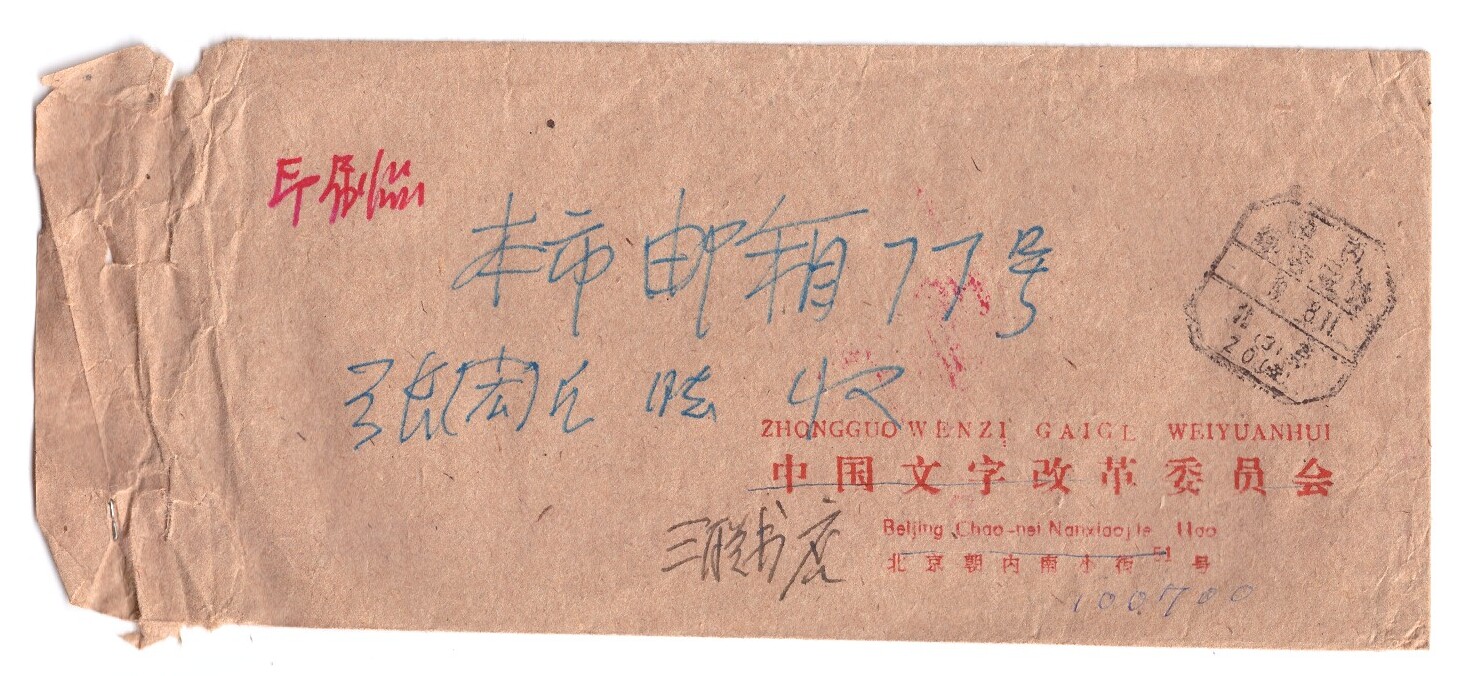 印刷品
本市邮箱77号
张
收
ZHONGGUO WENZI GAIGE WEIYUANHUI
中国文字改革委员会
三联书店
Beijing Chao-nei Nanxiaojie Hao
北京朝内南小街51号
100700